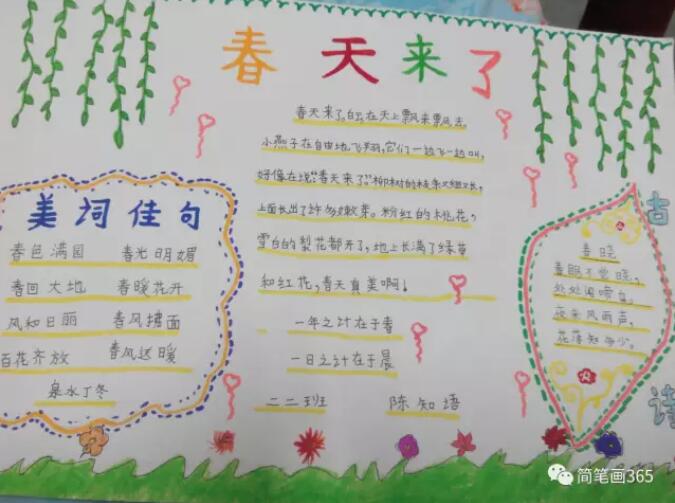 春天来了
美词佳句
春色满园 春光明媚
春回大地 春暖花开
风和日丽 春风拂面
百花齐放 春风送暖
泉水丁冬
春天来了,白云在天上飘来飘去,
小燕子在自由地飞翔,它们一边飞一边叫,
好像在说:“春天来了”柳树的枝条又细又长,
上面长出了许多嫩芽。粉红的桃花,
雪白的梨花都开了,地上长满了绿草
和红花,春天真美啊!
一年之计在于春
一日之计在于晨
二二班 陈知语
古诗
春晓
春眠不觉晓,
处处闻啼鸟。
夜来风雨声,
花落知多少。
简笔画365